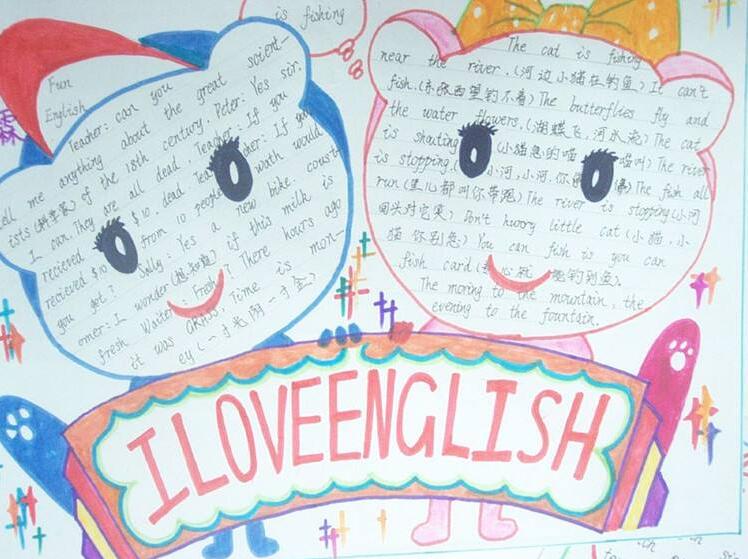 is fishing
Fun
English
Teacher: can you
tell me anything about the great scient-
ists (科学家) of the 18th century. Peter: Yes sir.
I can They are all dead. Teacher: If you
recieved $10 from 10 people
recieved $10
you get? Sally: Yes a new bike. coust-
omer: I wonder if this milk is
fresh Waiter: Fresh? There hours ago
it was grass. Time is mon-
ey (一寸光阴一寸金)
The cat is fishing
near the river. (河边小猫在钓鱼) It can't
fish. (东张西望钓不着) The butterflies fly and
the water flowers. (蝴蝶飞,河水流) The cat
is shouting (小猫急的喵喵叫) The river
is stopping. (小河,小河,你 The fish all
run (鱼儿都叫你带跑) The river is stopping (小河
回头对它笑) Don't huorry little cat (小猫,小
猫你别急) You can fish is you can
fish card 钓到鱼).
The moring to the mountain, the
evening to the fountain.
ILOVEENGLISH